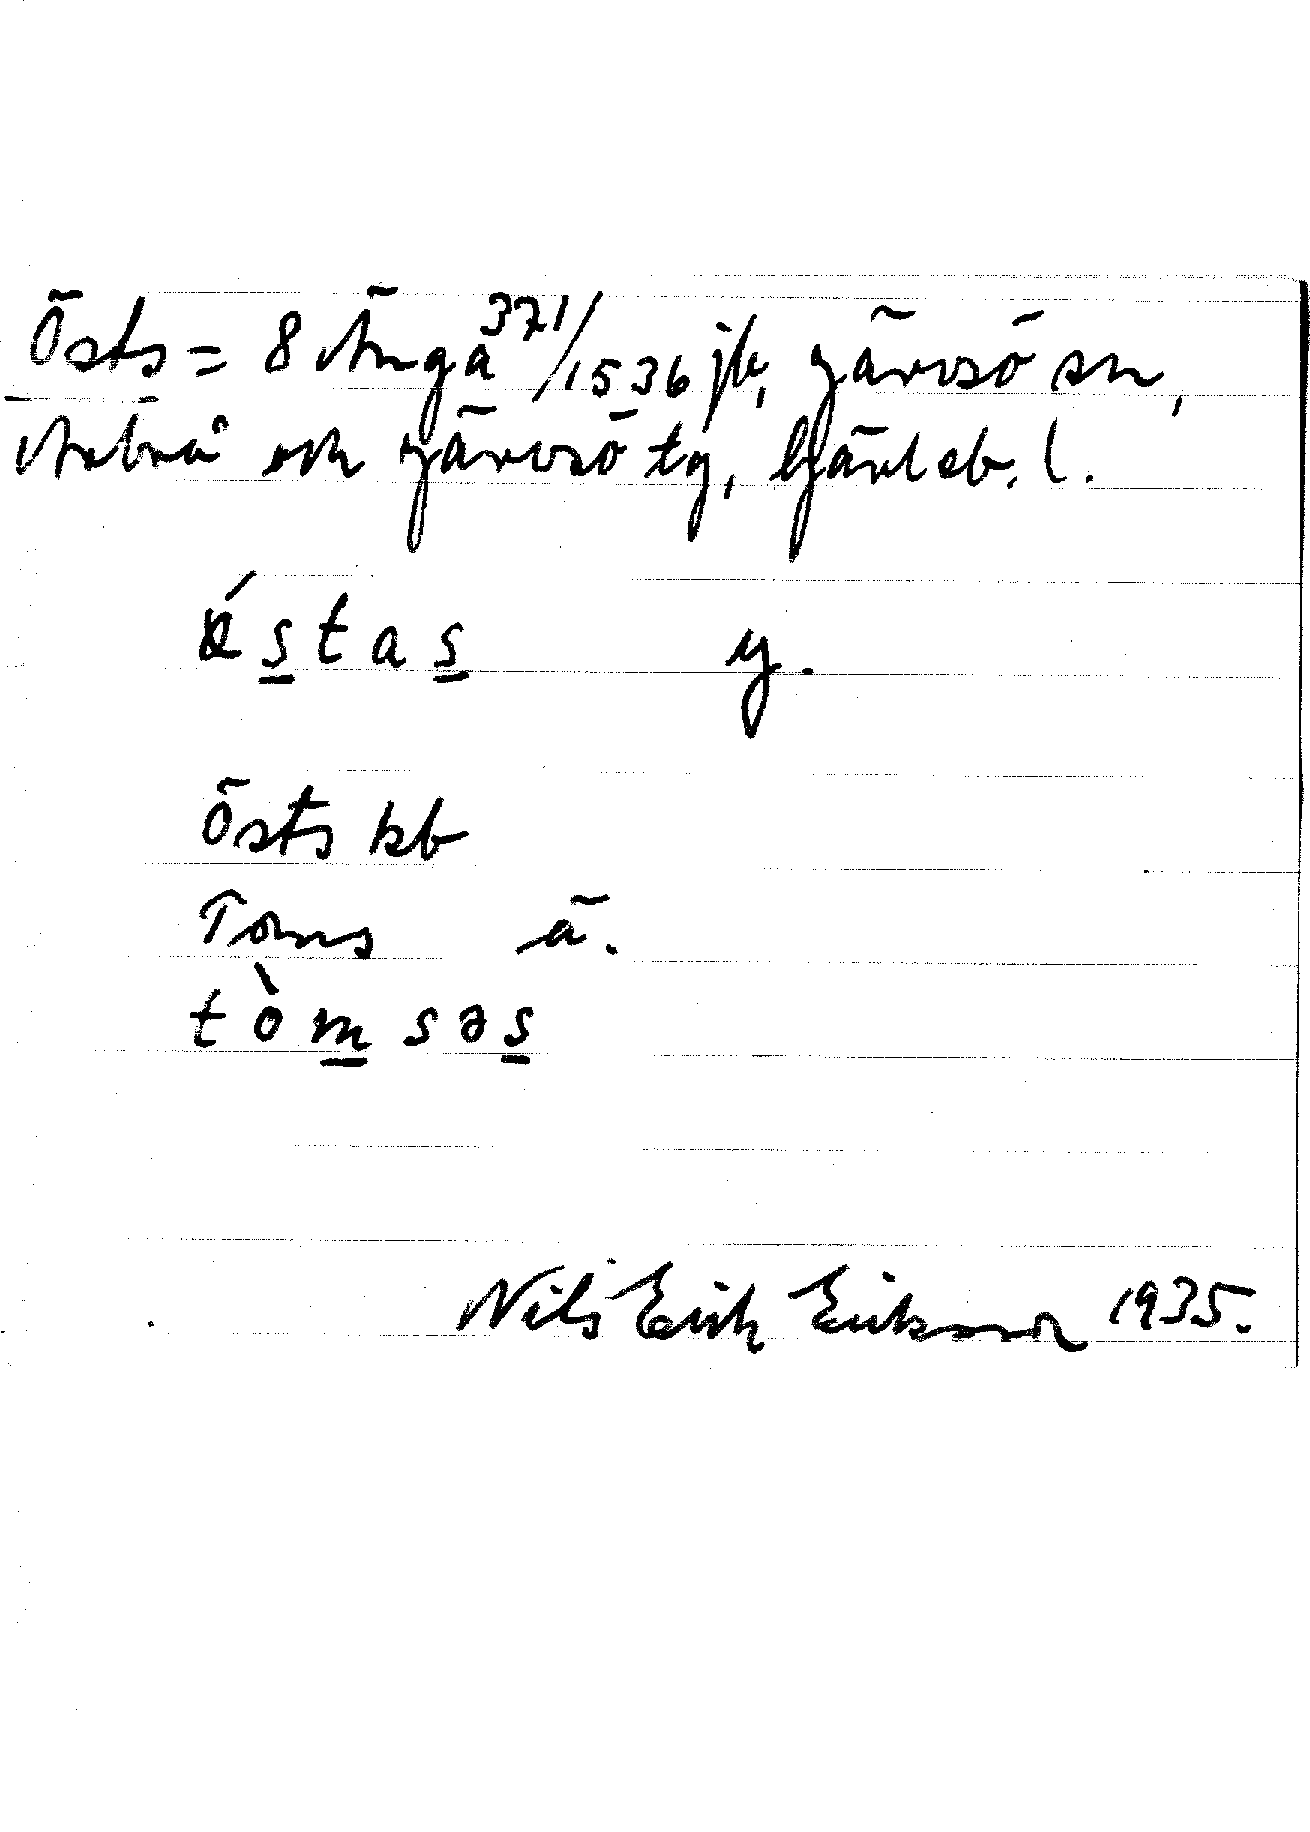 Östs = 8 Änga 371/1536 jb, Järvsö sn,
Arbrå och Järvsö tg, Gävleb. l.
stas y.
Östs kb
Toms ä.
tòmsəs
Nils Erik Eriksson 1935.